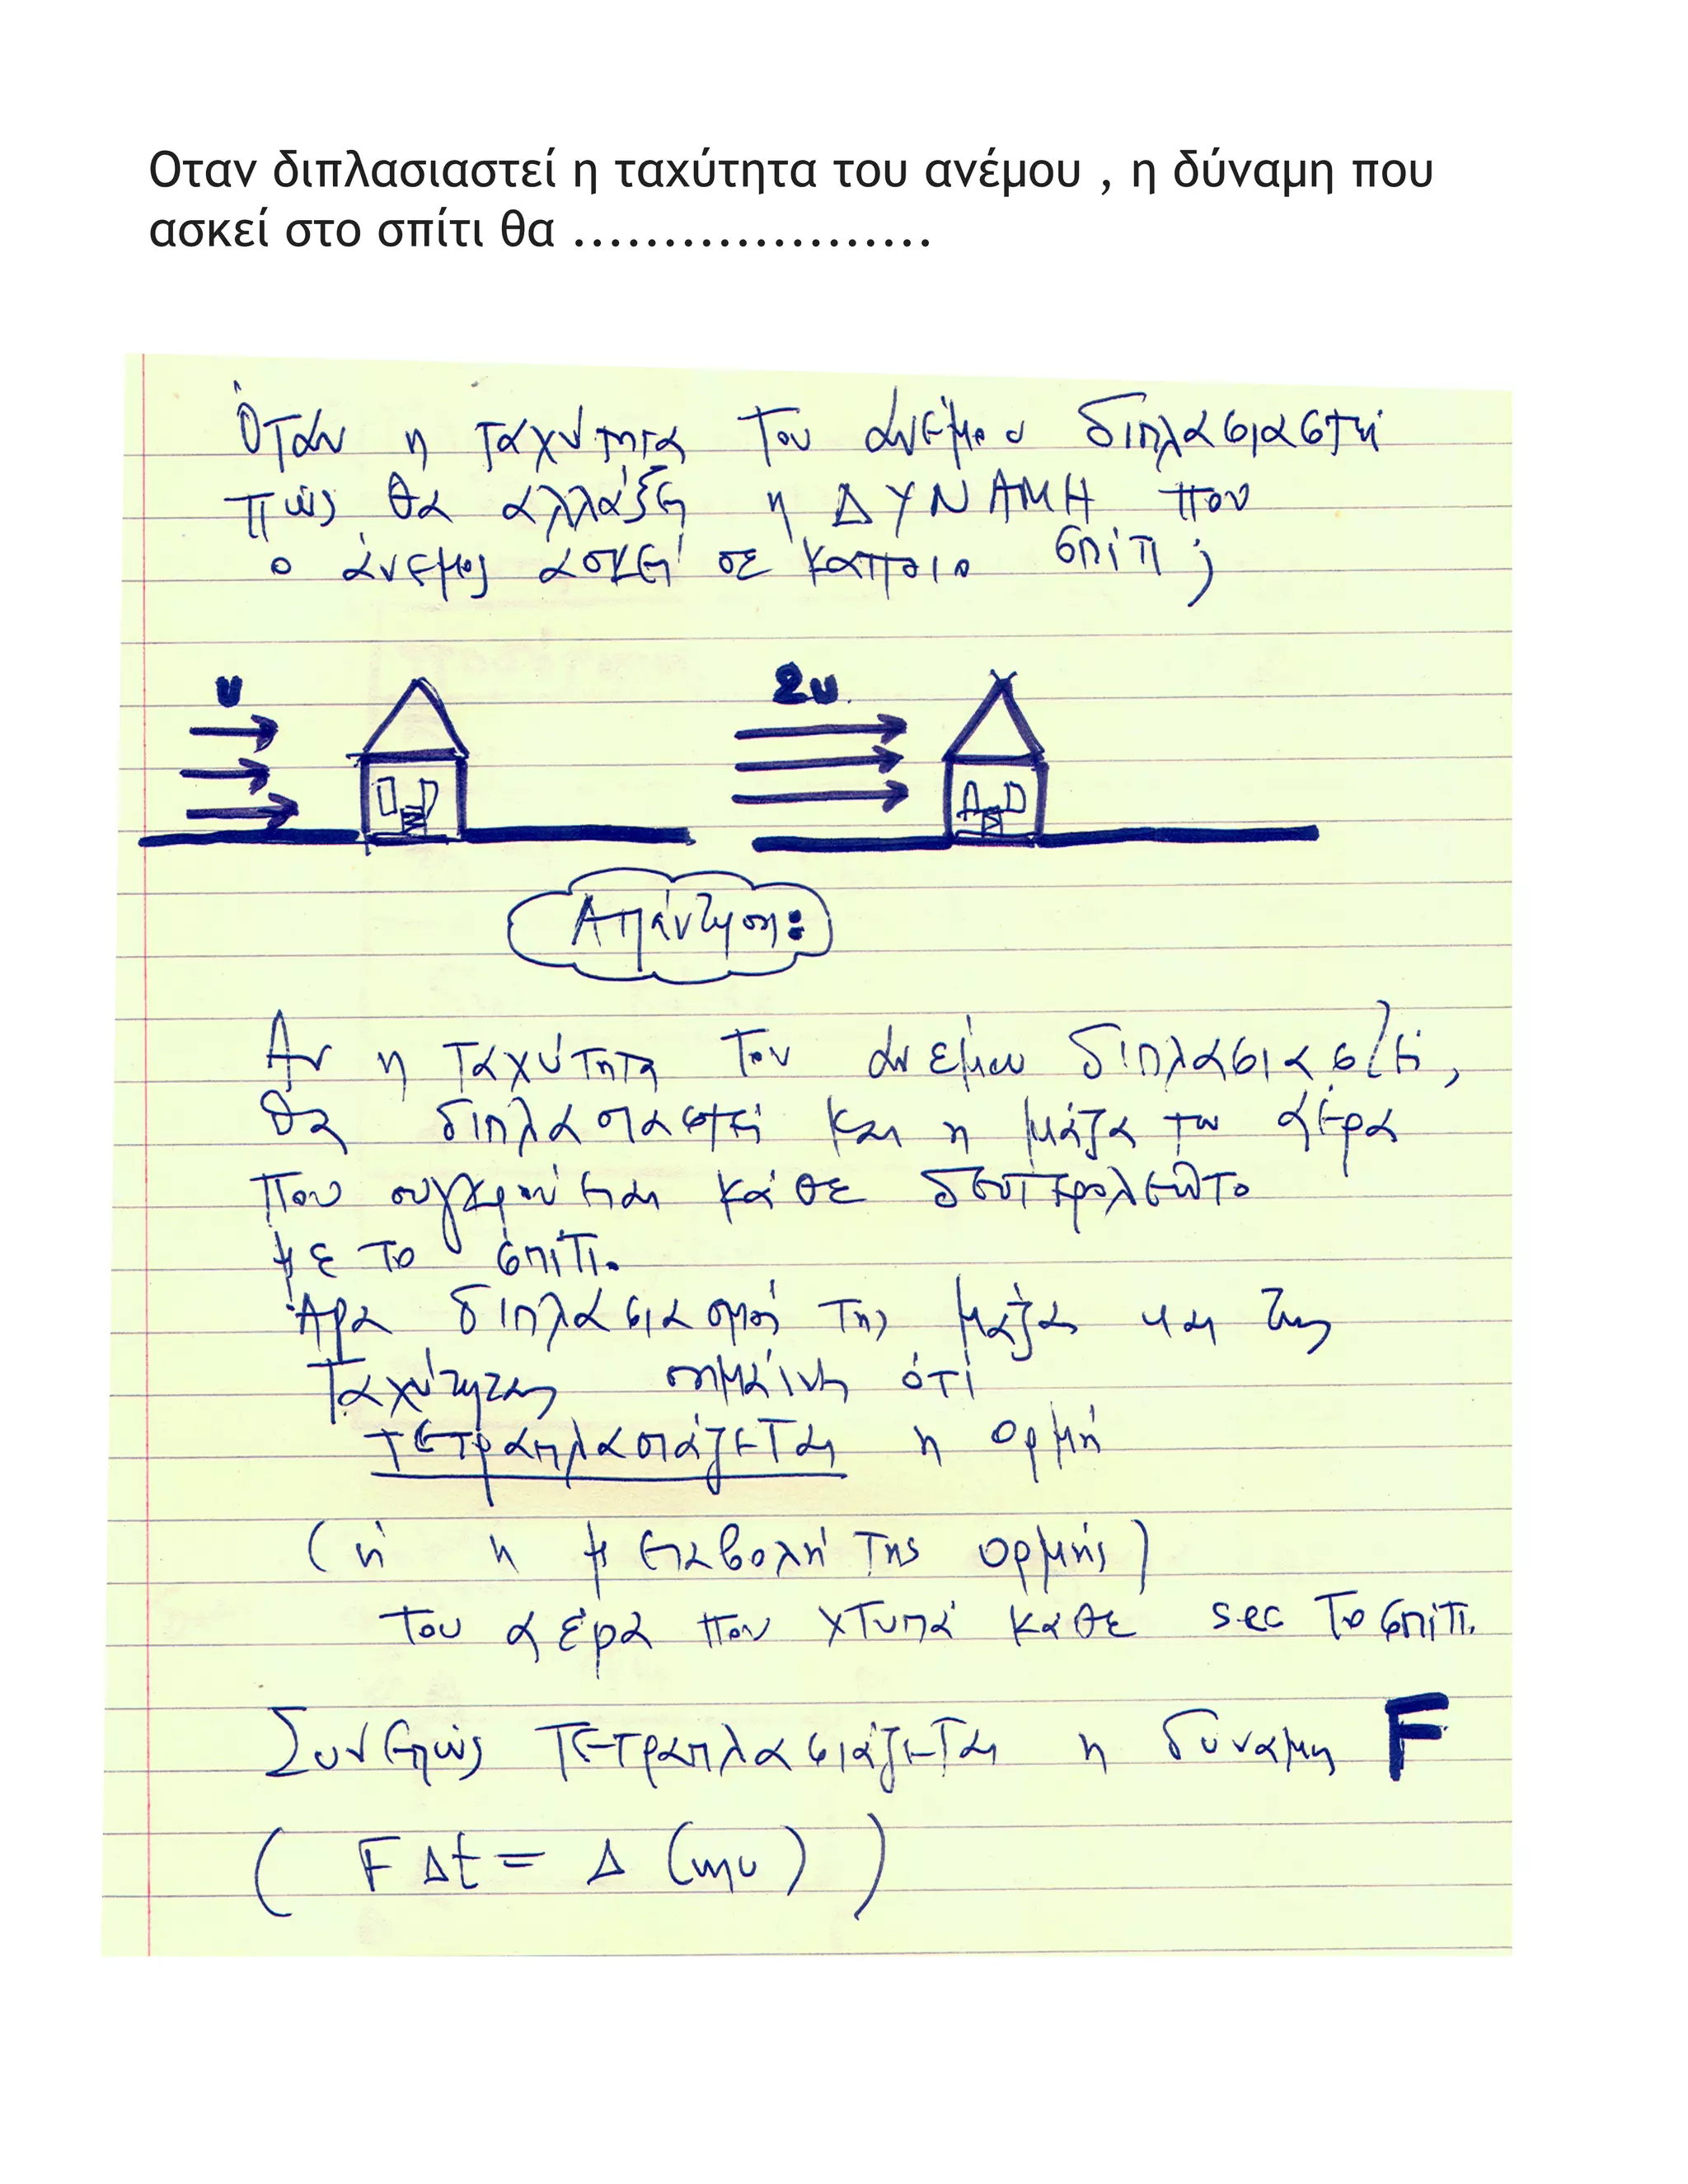 Οταν διπλασιαστεί η ταχύτητα του ανέμου , η δύναμη που
ασκεί στο σπίτι θα ....................
Όταν η ταχύτητα του ανέμου διπλασιαστεί
πώς θα αλλάξει η ΔΥΝΑΜΗ που
ο άνεμος ασκεί σε κάποιο σπίτι ;
υ 2υ
Απάντηση:
Αν η ταχύτητα του ανέμου διπλασιαστεί,
θα διπλασιαστεί και η μάζα του αέρα
που συγκρούεται κάθε δευτερόλεπτο
με το σπίτι.
Άρα διπλασιασμός της μάζας και της
ταχύτητας σημαίνει ότι
τετραπλασιάζεται η ορμή
(ή η μεταβολή της ορμής)
του αέρα που χτυπά κάθε sec το σπίτι.
Συνεπώς τετραπλασιάζεται η δύναμη F
( F Δt = Δ (mυ) )